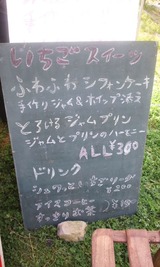 いちごスイーツ
ふわふわシフォンケーキ
手作りジャム&ホイップ添え
とろけるジャムプリン
ジャムとプリンのハーモニー
ALL¥300
ドリンク
¥200
アイスコーヒー